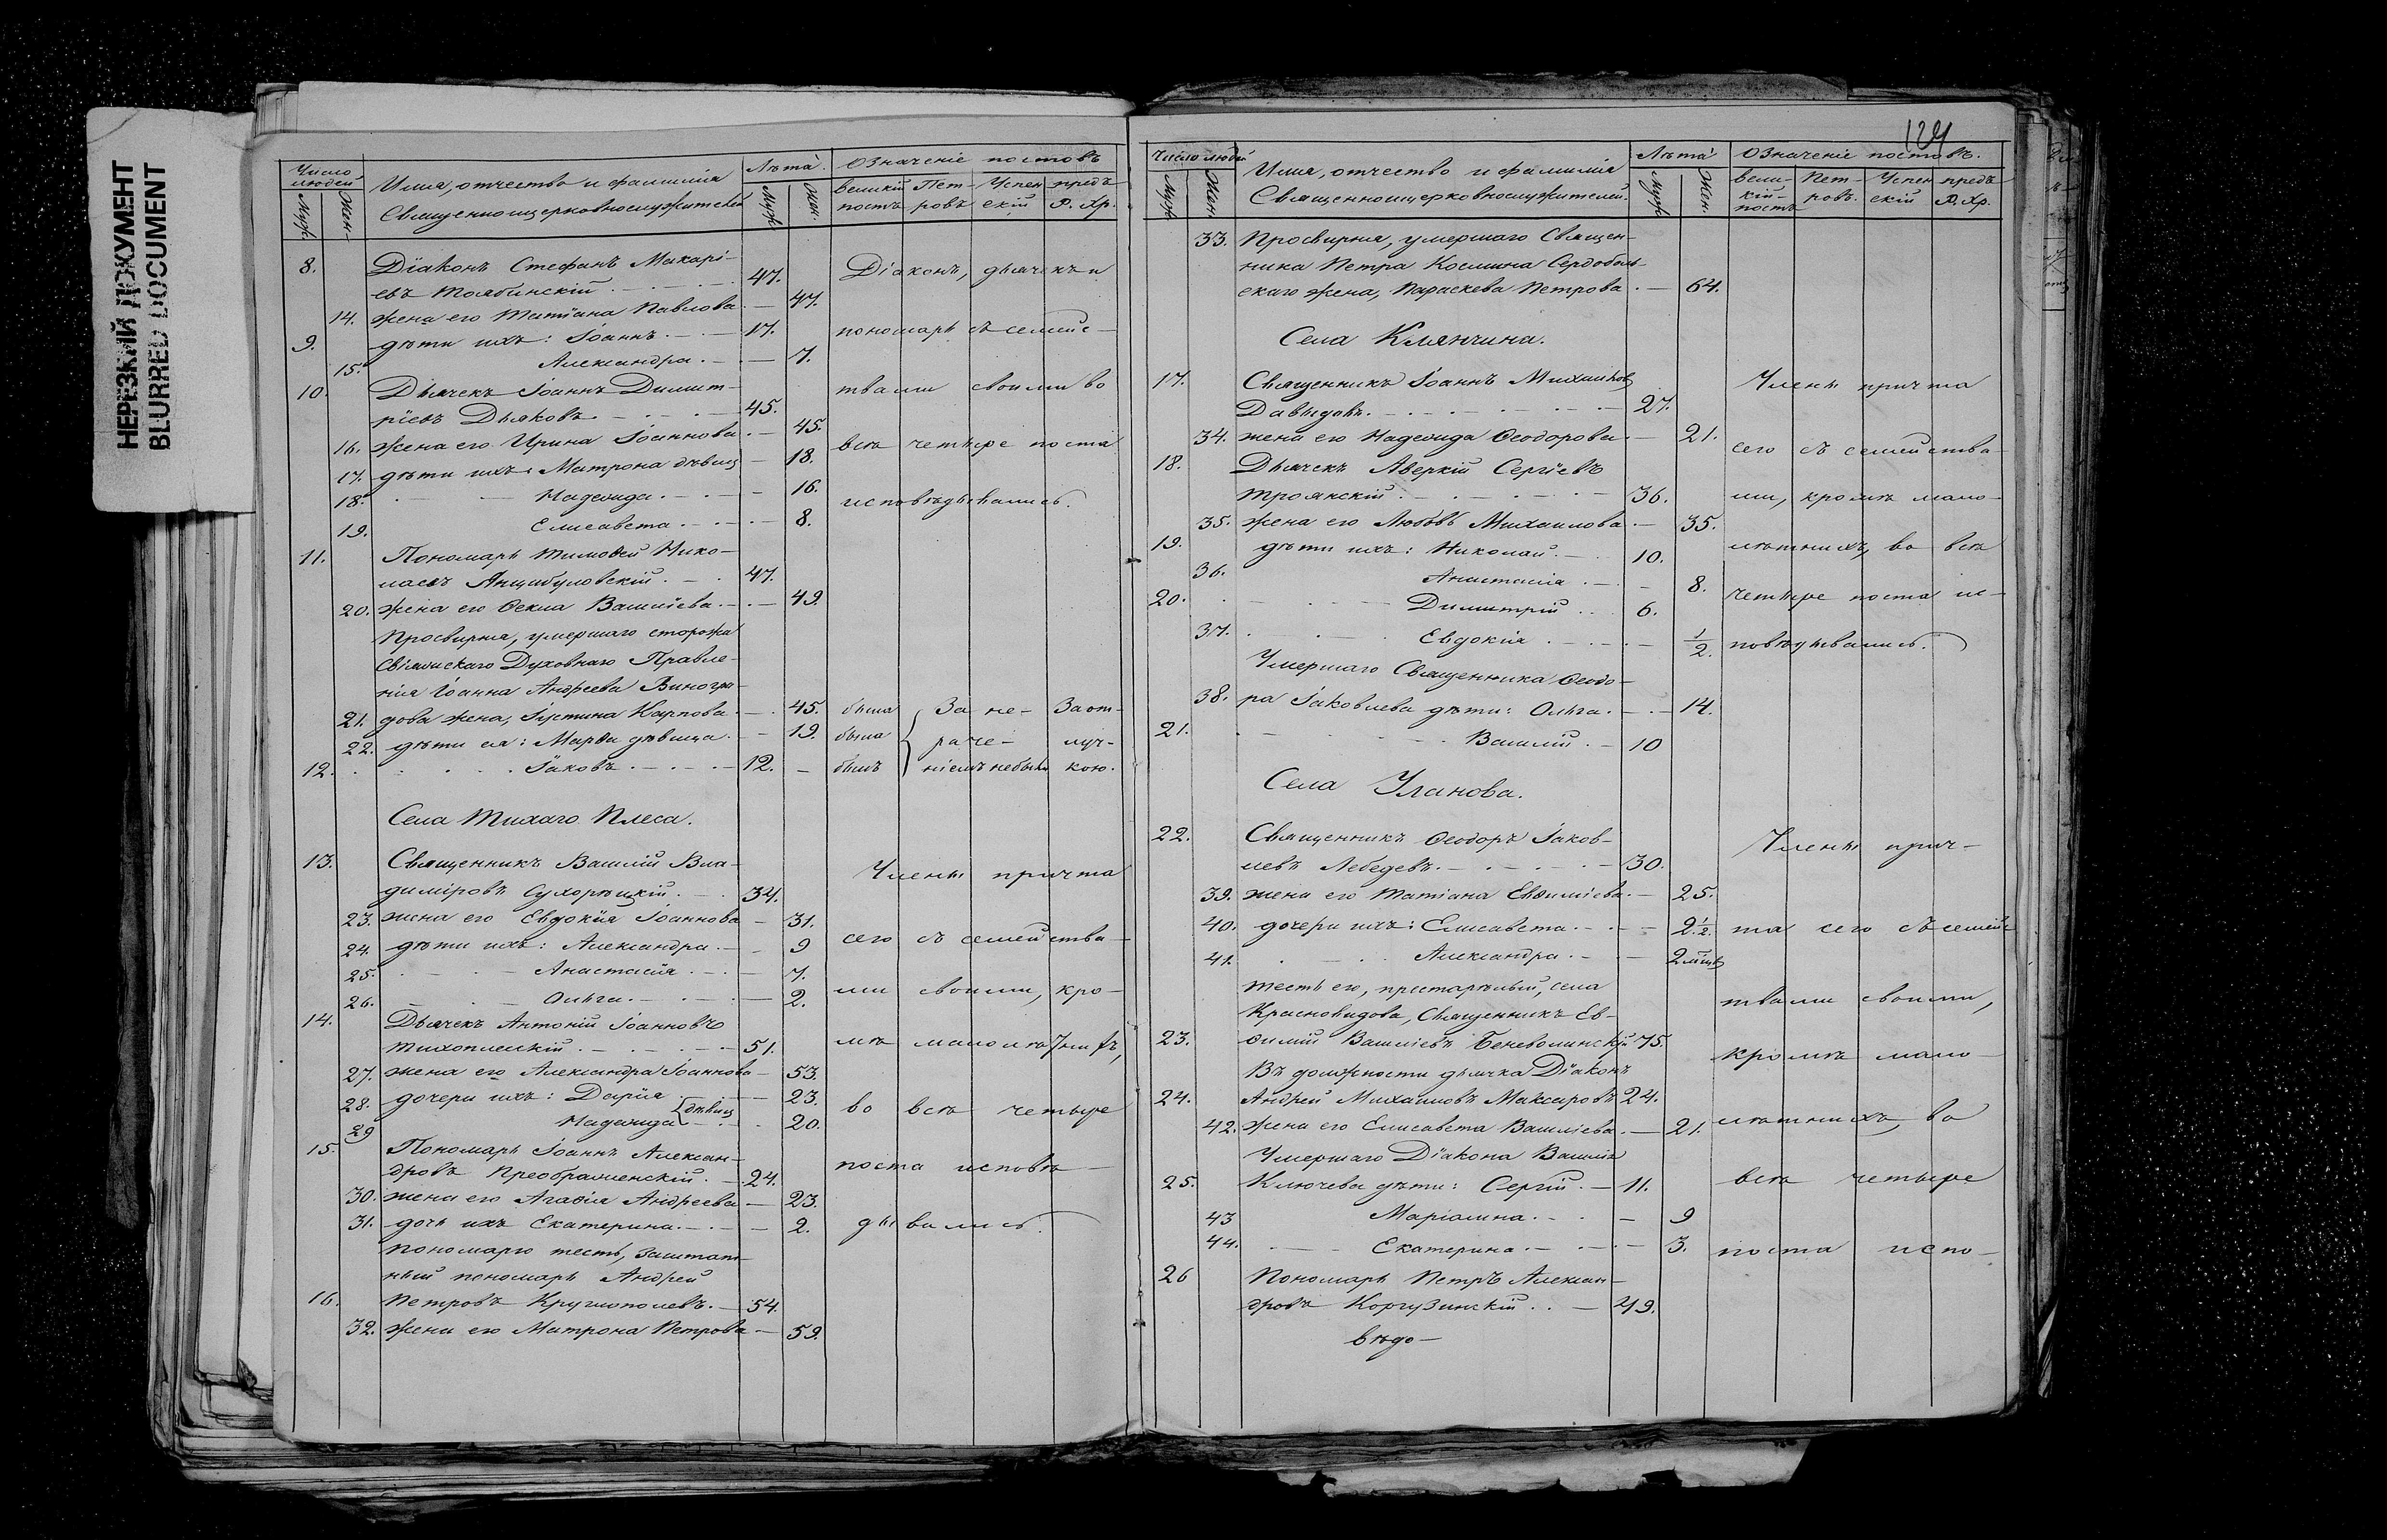 НЕРЕЗКИЙ ДОКУМЕНТ
BLURRED DOCUMENT
Число людей Имя, отчество и фамилия Священноицерковнослужителей Лѣта. Означеніе постовъ
Муж. Жен. Муж. Жен. великій постъ Пет-ровъ Успен-скій предъ Р. Хр.
8. Діаконъ Стефанъ Макарі-
евъ Толбинскій 47. Діаконъ, дьячекъ и
14. жена его Татіана Павлова 47.
9. дѣти ихъ: Іоаннъ 17. пономарь съ семейс-
15. Александра 7.
10. Дьячекъ Іоаннъ Димит- твами своими во
ріевъ Дьяковъ 45.
16. жена его Ирина Іоаннова 45. всѣ четыре поста
17. дѣти ихъ: Матрона дѣвиц 18.
18. Надежда 16. исповѣдывались.
19. Елисавета 8.
11. Пономарь Тимоѳей Нико-
лаевъ Анцибуловскій 47.
20. жена его Ѳекла Василіева 49.
Просвирня, умершаго сторожа
Свіяжскаго Духовнаго Правле-
нія Іоанна Андреева Виногра-
21. дова жена, Іустина Карпова 45. была За не- За от-
22. дѣти ея: Марѳа дѣвица 19. была раче- луч-
12. Іаковъ 12. былъ ніемъ небыли кою.
Села Тихаго Плеса.
13. Священникъ Василій Вла-
диміровъ Сухорѣцкій 34. Члены причта
23. жена его Евдокія Іоаннова 31.
24. дѣти ихъ: Александра 9 сего съ семейства-
25. Анастасія 7.
26. Ольга 2. ми своими, кро-
14. Дьячекъ Антоній Іоанновъ
Тихоплескій 51. мѣ малолѣтнихъ,
27. жена его Александра Іоаннова 53.
28. дочери ихъ: Дарія 23.
29 Надежда дѣвиц 20. во всѣ четыре
15. Пономарь Іоаннъ Алексан-
дровъ Преображенскій 24. поста исповѣ-
30. жена его Агаѳія Андреева 23.
31. дочь ихъ Екатерина 2. дывались.
Пономарю тесть, заштат-
ный пономарь Андрей
16. Петровъ Круглополевъ 54.
32. жена его Матрона Петрова 59.
124
Число людей Имя, отчество и фамилія Священноицерковнослужителей. Лѣта Означеніе постовъ.
Муж. Жен. Муж. Жен. вели-кій-постъ Пет-ровъ. Успен-скій предъ Р. Хр.
33. Просвирня, умершаго Священ-
ника Петра Космина Сердоболь-
скаго жена, Параскева Петрова 64.
Села Клянчина.
17. Священникъ Іоаннъ Михайлов Члены причта
Давыдовъ 27.
34. жена его Надежда Ѳеодорова 21. сего съ семейства-
18. Дьячекъ Аверкій Сергіевъ
Троянскій 36. ми, кромѣ мало-
35. жена его Любовь Михаилова 35.
19. дѣти ихъ: Николай 10. лѣтнихъ, во всѣ
36. Анастасія 8.
20. Димитрій 6. четыре поста ис-
37. Евдокія 1/2. повѣдывались.
Умершаго Священника Ѳеодо-
38. ра Іаковлева дѣти: Ольга 14.
21. Василій 10
Села Уланова.
22. Священникъ Ѳеодоръ Іаков- Члены прич-
левъ Лебедевъ 30.
39. жена его Татіана Евѳиміева 25.
40. дочери ихъ: Елисавета 2 1/2. та сего съ семейс
41. Александра 2 мѣсц
тесть его, престарѣлый, села твами своими,
Красновидова, Священникъ Ев-
23. ѳимій Василіевъ Беневолинскій 75. кромѣ мало-
Въ должности дьячка Діаконъ
24. Андрей Михаиловъ Максаровъ 24.
42. жена его Елисавета Василіева 21. лѣтнихъ, во
Умершаго Діакона Василія
25. Ключева дѣти: Сергій 11. всѣ четыре
43 Маріамна 9
44. Екатерина 3. поста испо-
26 Пономарь Петръ Алексан-
дровъ Коргузинскій 49.
вѣдо-